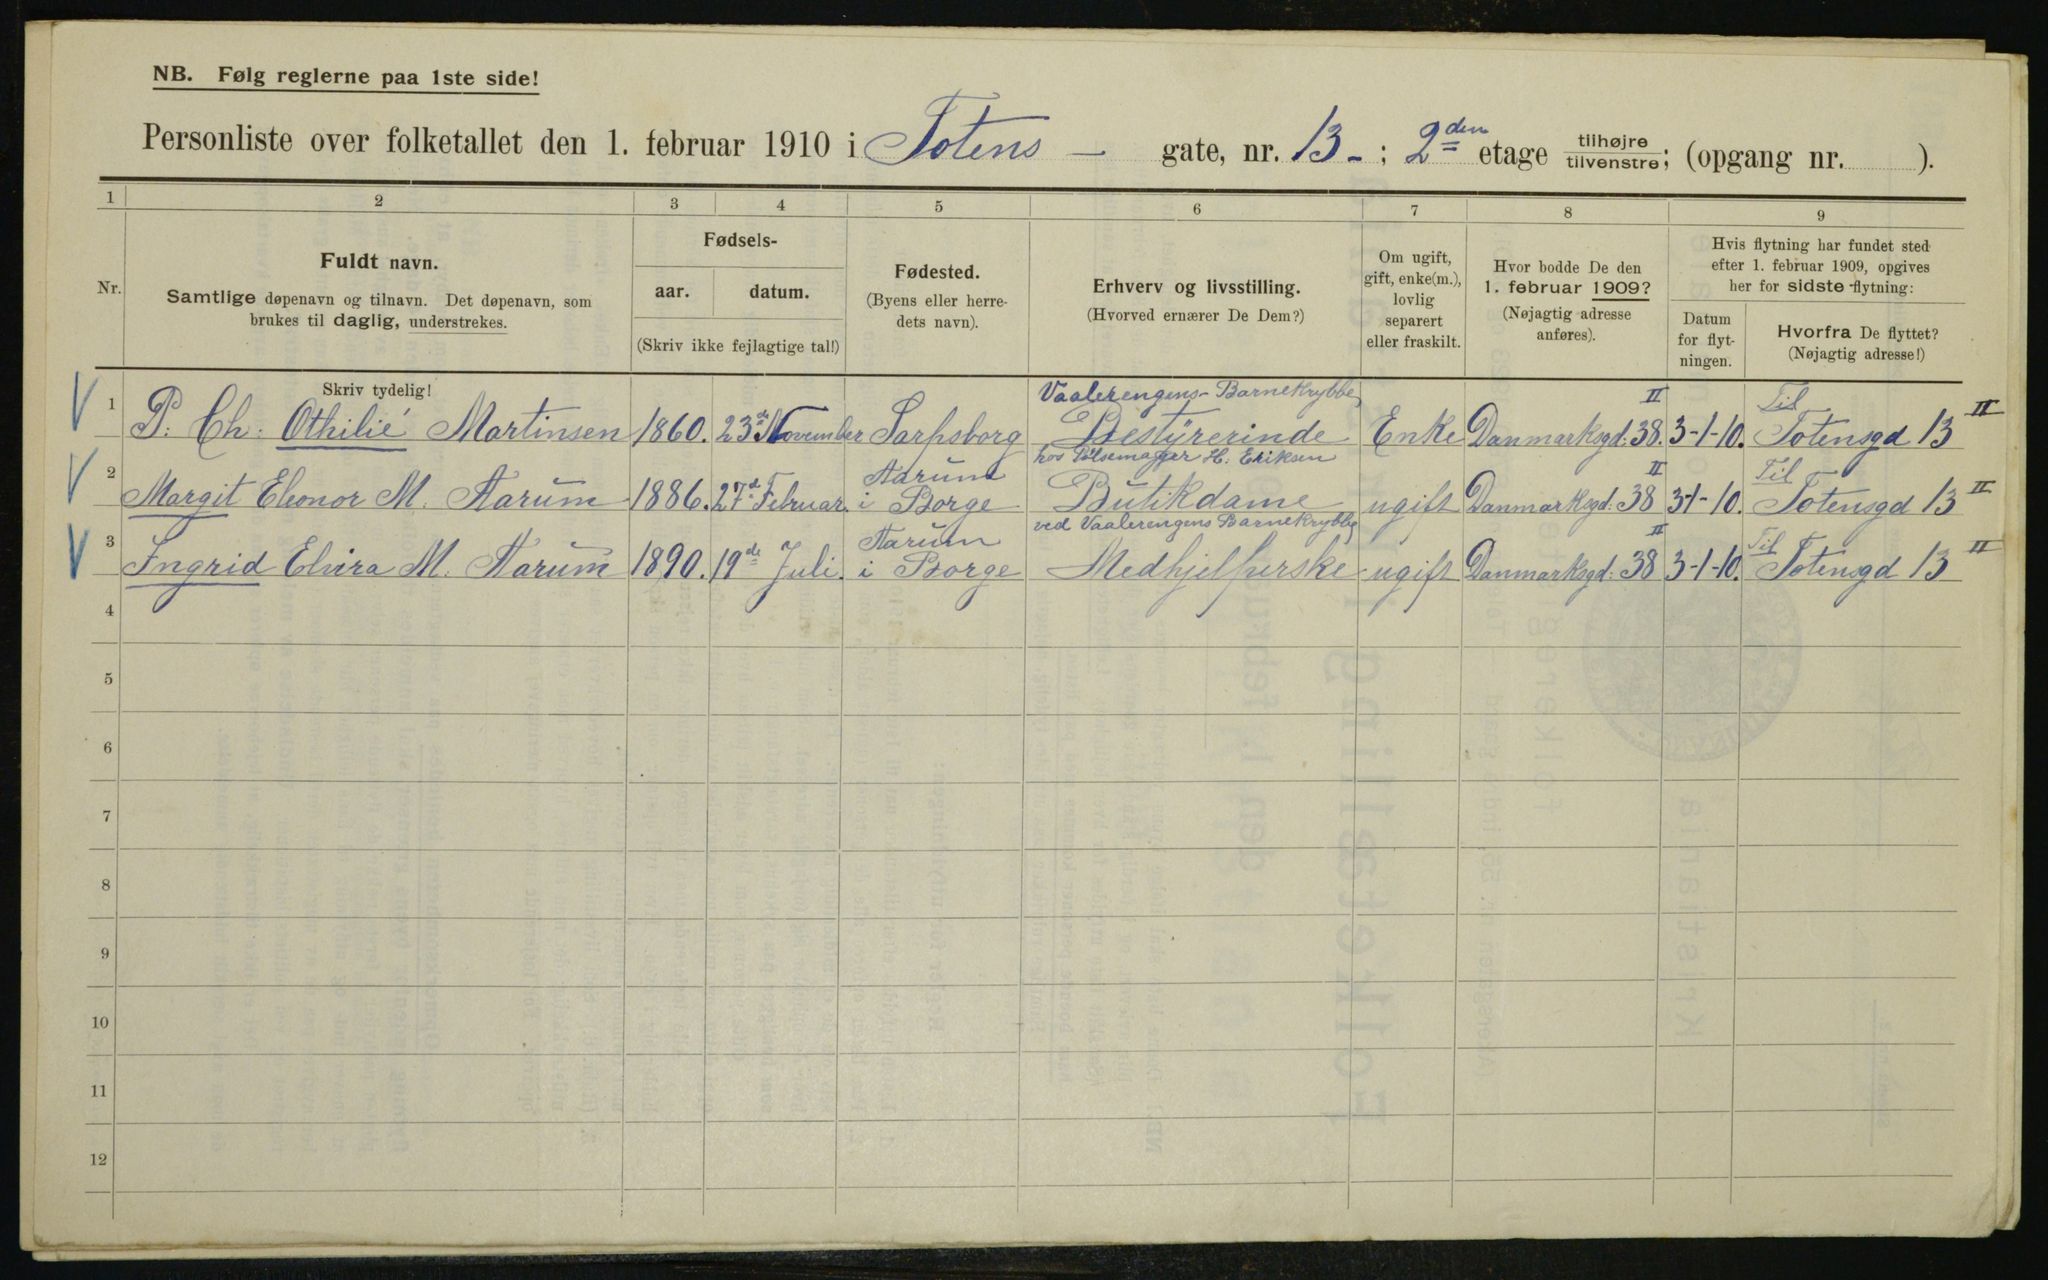 NB. Følg reglerne paa 1ste side!
Personliste over folketallet den 1. februar 1910 i Totens — gate, nr. 13 - ; 2den etage tilhøjre tilvenstre; (opgang nr. ).
1 2 3 4 5 6 7 8 9
Nr.
Fuldt navn.
Samtlige døpenavn og tilnavn. Det døpenavn, som
brukes til daglig, understrekes.
Skriv tydelig!
Fødsels-
aar. datum.
(Skriv ikke fejlagtige tal!)
Fødested.
(Byens eller herre-
dets navn).
Erhverv og livsstilling.
(Hvorved ernærer De Dem?)
Om ugift,
gift, enke(m.),
lovlig
separert
eller fraskilt.
Hvor bodde De den
1. februar 1909?
(Nøjagtig adresse
anføres).
Hvis flytning har fundet sted
efter 1. februar 1909, opgives
her for sidste flytning:
Datum
for flyt-
ningen.
Hvorfra De flyttet?
(Nøjagtig adresse!)
Vaalerengens- Barnekrybbe II Til II
1 P. Ch. Othilié Martinsen 1860. 23de November Sarpsborg Bestyrerinde Enke Danmarksgd: 38. 3-1-10. Totensgd 13
Aarum hos Pølsemager H. Eriksen II Til II
2 Margit Eleonor M. Aarum 1886. 27de Februar. i Borge Butikdame ugift Danmarksgd: 38 3-1-10. Totensgd 13
Aarum ved Vaalerengens Barnekrybbe II Til II
3 Ingrid Elvira M. Aarum 1890. 19de Juli. i Borge Medhjelperske ugift Danmarksgd: 38 3-1-10. Totensgd 13
4
5
6
7
8
9
10
11
12